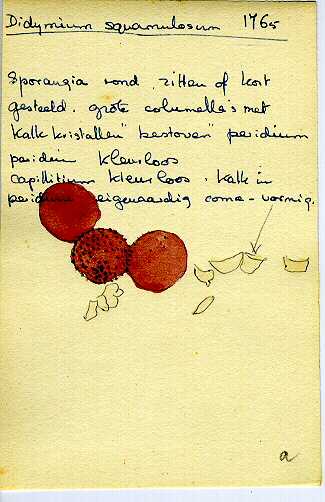 Didymium squamulosum 1765
Sporangia rond, zitten of kort
gesteeld. grote columella's met
"kalkkristallen" bestoven peridium
peridium kleurloos
capillitium kleurloos. Kalk in
peridium eigenaardig coma-vormig.
a